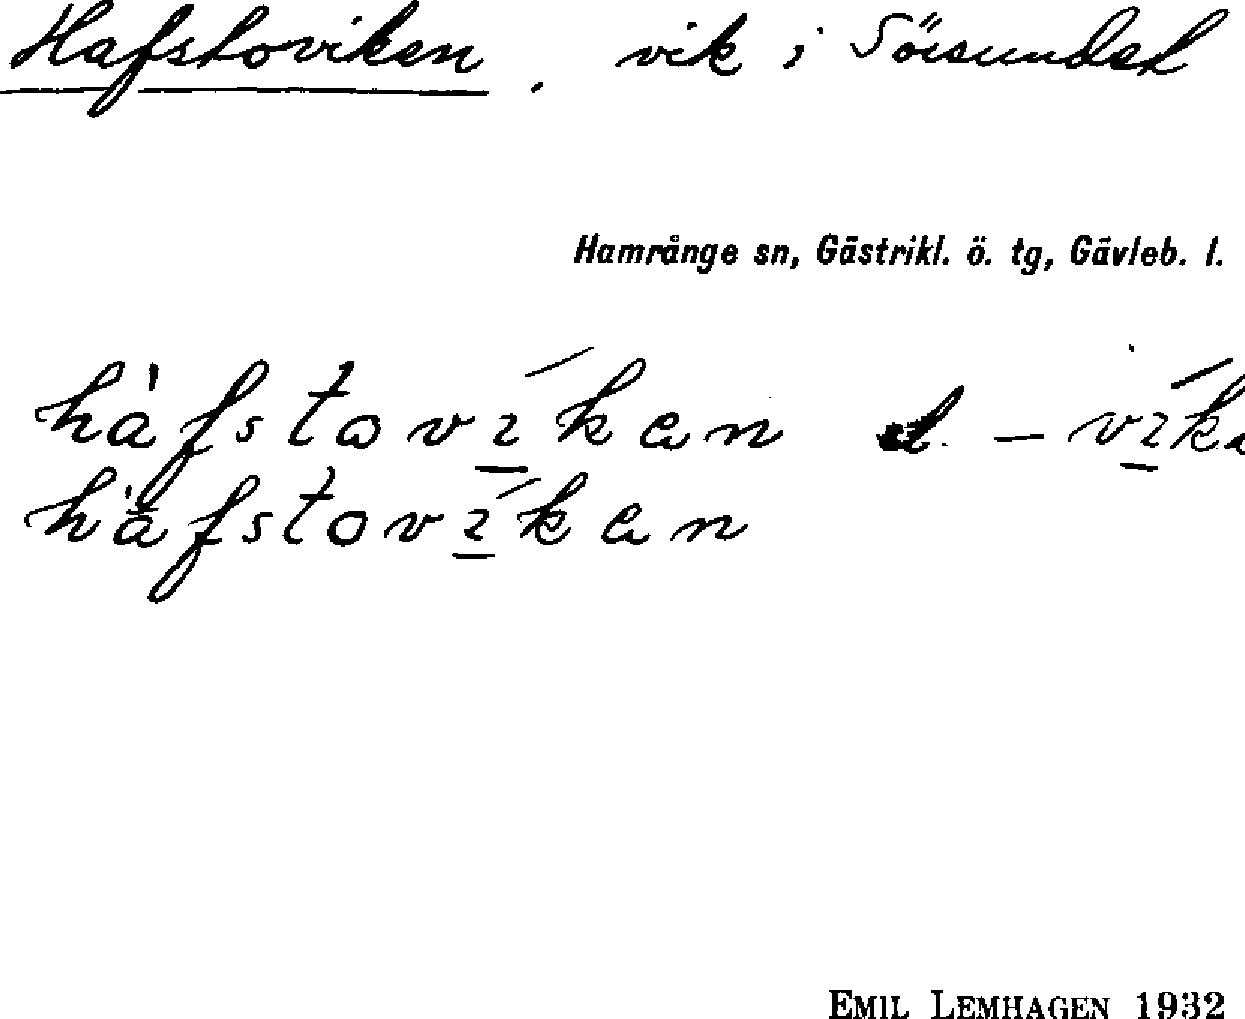 Hafstoviken, vik i Sörsundet
Hamrånge sn, Gästrikl. ö. tg, Gävleb. l.
hàfstovíkan el. – víka
hàfstovíkan
EMIL LEMHAGEN 1932